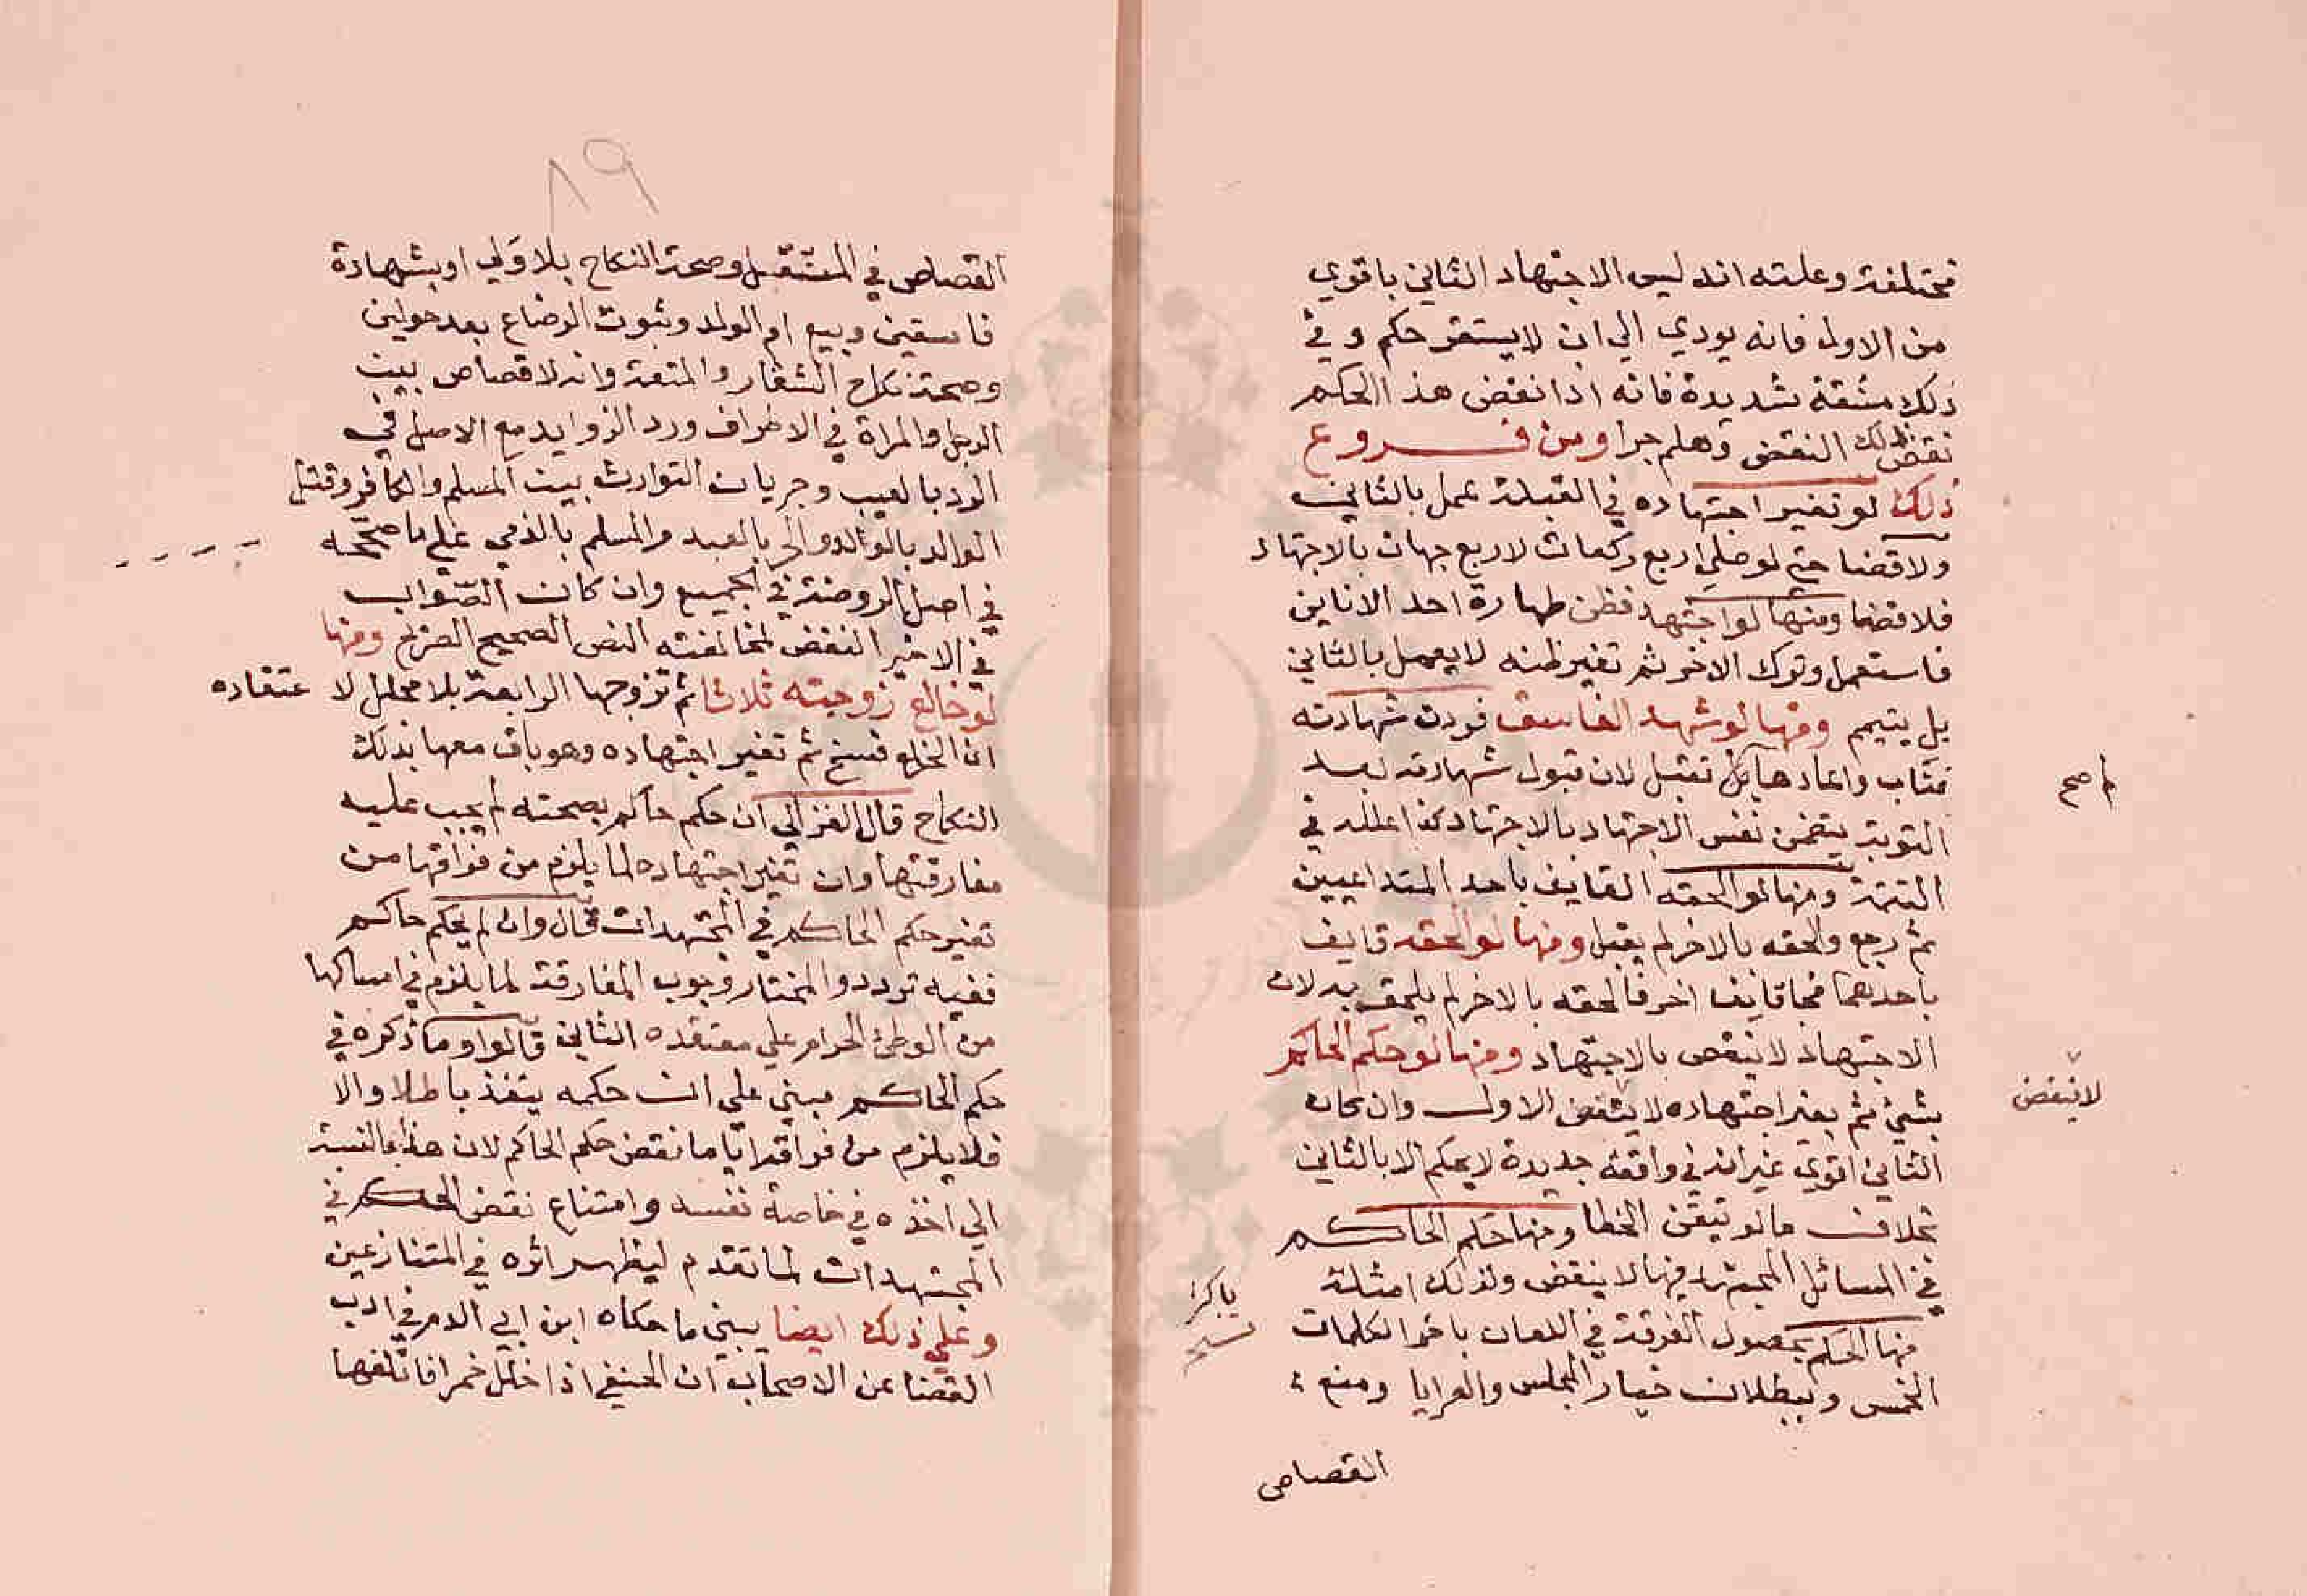 مختلفة وعلته انه ليس الاجتهاد الثاني باقوي
من الاول فانه يودي الي ان لا يستقر حكم وفي
ذلك مشقة شديدة فانه اذا نقض هذا الحكم
نقض ذلك النقض وهلم جرا ومن فروع
ذلك لو تغير اجتهاده في القبلة عمل بالثاني
ولا قضا حتي لو صلي اربع ركعات لاربع جهات بالاجتهاد
فلا قضا ومنها لو اجتهد فظن طهارة احد الاناين
فاستعمل وترك الاخر ثم تغير ظنه لا يعمل بالثاني
بل يتيمم ومنها لو شهد الفاسق فردت شهادته
فتاب واعادها لم تقبل لان قبول شهادته بعد
التوبة يتضمن نقض الاجتهاد بالاجتهاد كذا علله في
التتمة ومنها لو الحقه القايف باحد المتداعيين
ثم رجع والحقه بالاخر لم يقبل ومنها لو الحقه قايف
باحدهما فجا قايف اخر فالحقه بالاخر لم يلحق به لان
الاجتهاد لا ينقض بالاجتهاد ومنها لو حكم الحاكم
بشيئ ثم تغير اجتهاده لا ينقض الاول وان كان
الثاني اقوي غير انه في واقعة جديدة لا يحكم الا بالثاني
بخلاف ما لو تيقن الخطا ومنها حكم الحاكم
في المسائل المجتهد فيها لا ينقض ولذلك امثلة
منها الحكم بحصول الفرقة في اللعان باكثر الكلمات
الخمس وببطلان خيار المجلس والعرايا ومنع
القصاص
لم صح
لا ينقض
باكثر
نسخه
٨٩
القصاص في المثقل وصحة النكاح بلا ولي او بشهادة
فاسقين وبيع ام الولد وثبوت الرضاع بعد حولين
وصحة نكاح الشغار والمتعة وانه لا قصاص بين
الرجل والمراة في الاطراف ورد الزوايد مع الاصل في
الرد بالعيب وجريان التوارث بين المسلم والكافر وقتل
الوالد بالولد والحر بالعبد والمسلم بالذمي علي ما صححه
في اصل الروضة في الجميع وان كان الصواب
في الاخير النقض لمخالفته النص الصحيح الصريح ومنها
لو خالع زوجته ثلاثا ثم تزوجها الرابعة بلا محلل لاعتقاده
ان الخلع فسخ ثم تغير اجتهاده وهو باق معها بذلك
النكاح قال الغزالي ان حكم حاكم بصحته لم يجب عليه
مفارقتها وان تغير اجتهاده لما يلزم من فراقها من
تغير حكم الحاكم في المجتهدات قال وان لم يحكم حاكم
ففيه تردد والمختار وجوب المفارقة لما يلزم في امساكها
من الوطئ الحرام علي معتقده الثاني قالوا وما ذكره في
حكم الحاكم مبني علي ان حكمه ينفذ باطلا والا
فلا يلزم من فراقه اياها نقض حكم الحاكم لان هذا بالنسبة
الي اخذه في خاصة نفسه وامتناع نقض الحكم في
المجتهدات لما تقدم ليظهر اثره في المتنازعين
وعلي ذلك ايضا يبني ما حكاه ابن ابي الدم في ادب
القضا عن الاصحاب ان الحنفي اذا خلل خمرا فاتلفها